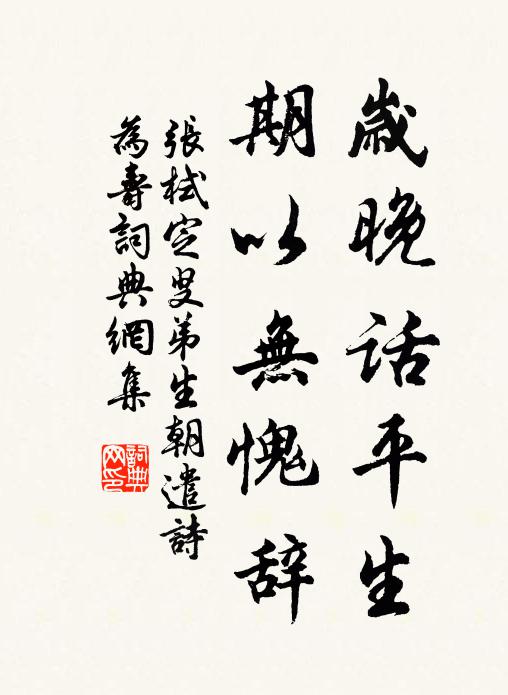 歲晚話平生
期以無愧辞
張栻定叟弟生朝遣詩
為壽詞典網集
詞典网印